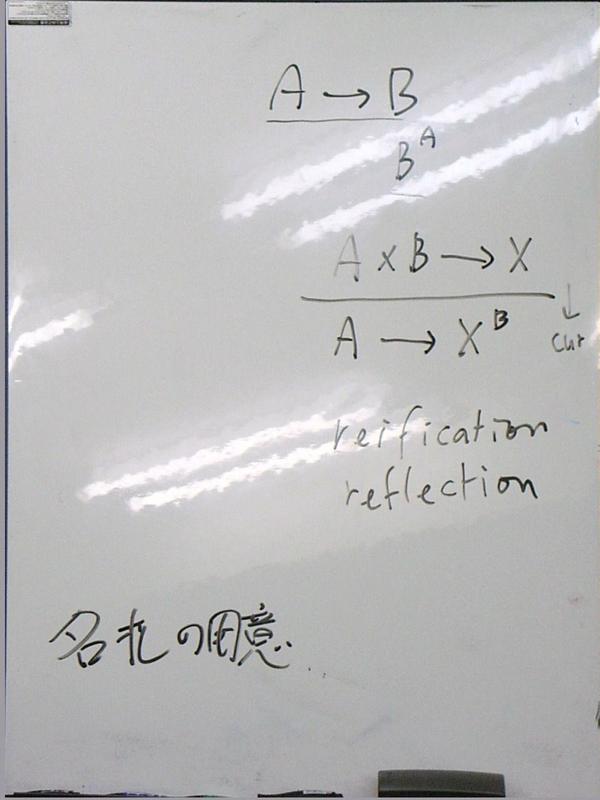 A → B
B^A
A × B → X
A → X^B
↓
Cur
reification
reflection
名札の用意